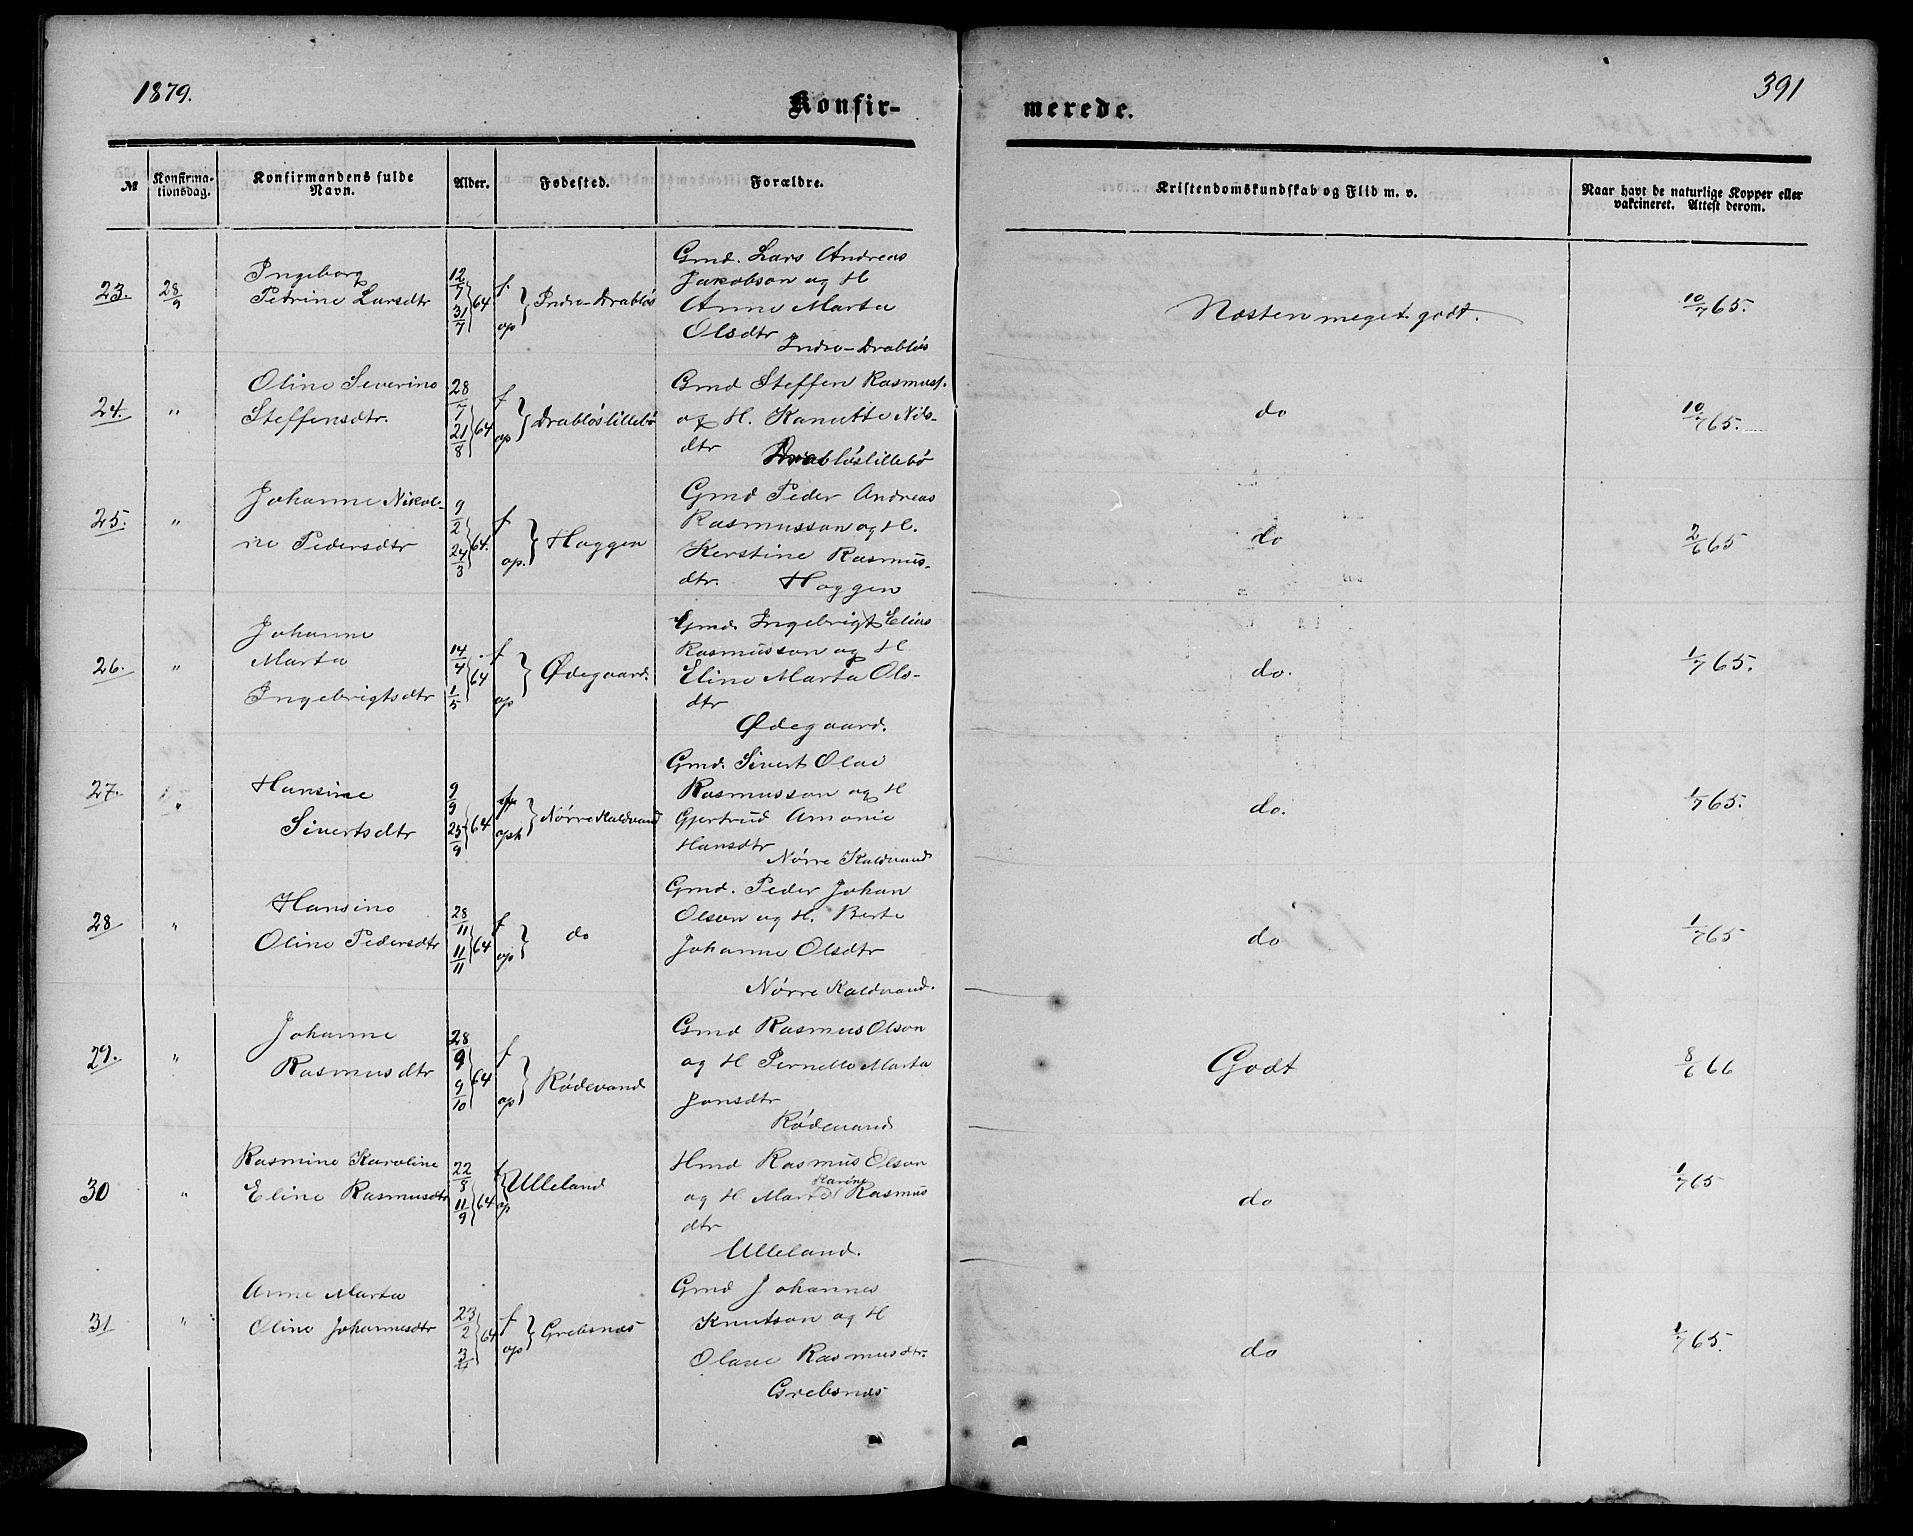 1879.
391
Konfir- merede.
№ Konfirma-tionsdag. Konfirmandens fulde Navn. Alder. Fødested. Forældre. Kristendomskundskab og Flid m. v. Naar havt de naturlige Kopper eller vakcineret. Attest derom.
23. 28/9
Ingeborg
Petrine Larsdtr
12/7 31/7 } 64 f op } Indre-Drabløs
Gmd. Lars Andreas
Jakobson og H
Anne Marta
Olsdtr
Indre-Drabløs
Næsten meget godt.
10/7 65.
24. "
Oline Severine
Steffensdtr.
28/7 21/8 } 64 f op } Drabløslillebø
Gmd Steffen Rasmuss.
og H. Kanutte Nils-
dtr
Drabløslillebø
do
10/7 65.
25. "
Johanne Nikol-
ine Pedersdtr
9/2 24/3 } 64. f op. } Haggen
Gmd Peder Andreas
Rasmusson og H.
Kerstine Rasmus-
dtr. Haggen
do
2/6 65
26. "
Johanne
Marta
Ingebrigtsdtr
14/4 1/5 } 64 f op } Ødegaard.
Gmd. Ingebrigt Elias
Rasmusson og H
Eline Marta Ols-
dtr
Ødegaard.
do.
1/7 65.
27. "
Hansine
Sivertsdtr
9/9 25/9 } 64 f oph } Nørre Kaldvand
Gmd. Sivert Olai
Rasmusson og H
Gjertrud Amonie
Hansdtr
Nørre Kaldvand
do.
1/7 65.
28 "
Hansine
Oline Pedersdtr
28/11 11/11 } 64 f op } do
Gmd. Peder Johan
Olson og H. Berte
Johanne Olsdtr
Nørre Kaldvand.
do
1/7 65
29. "
Johanne
Rasmusdtr
28/9 9/10 } 64 f op } Rødevand
Gmd Rasmus Olson
og H Pernelle Marta
Jonsdtr
Rødevand
Godt
8/6 66
30 "
Rasmine Karoline
Eline Rasmusdtr
22/8 11/9 } 64 f op } Ulleland
Hmd Rasmus Olson
Karine
og H Marta Rasmus
dtr
Ulleland.
do
1/7 65
31 "
Anne Marta
Oline Johannesdtr
23/2 3/4 } 64 f op } Grebsnæs
Gmd Johannes
Knutson og H
Olane Rasmusdtr.
Grebsnæs
do
1/7 65.